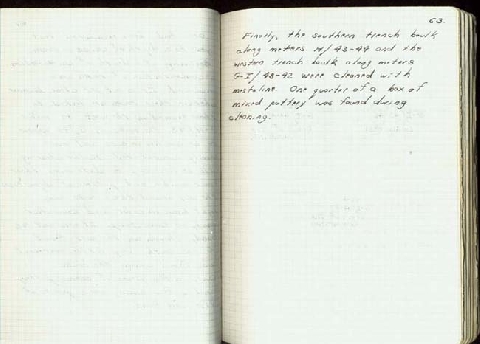 63.
Finally, the southern trench baulk
along meters M/43-44 and the
western trench baulk along meters
G-I/43-42 were cleaned with
mistolino. One quarter of a box of
mixed pottery was found during
cleaning.